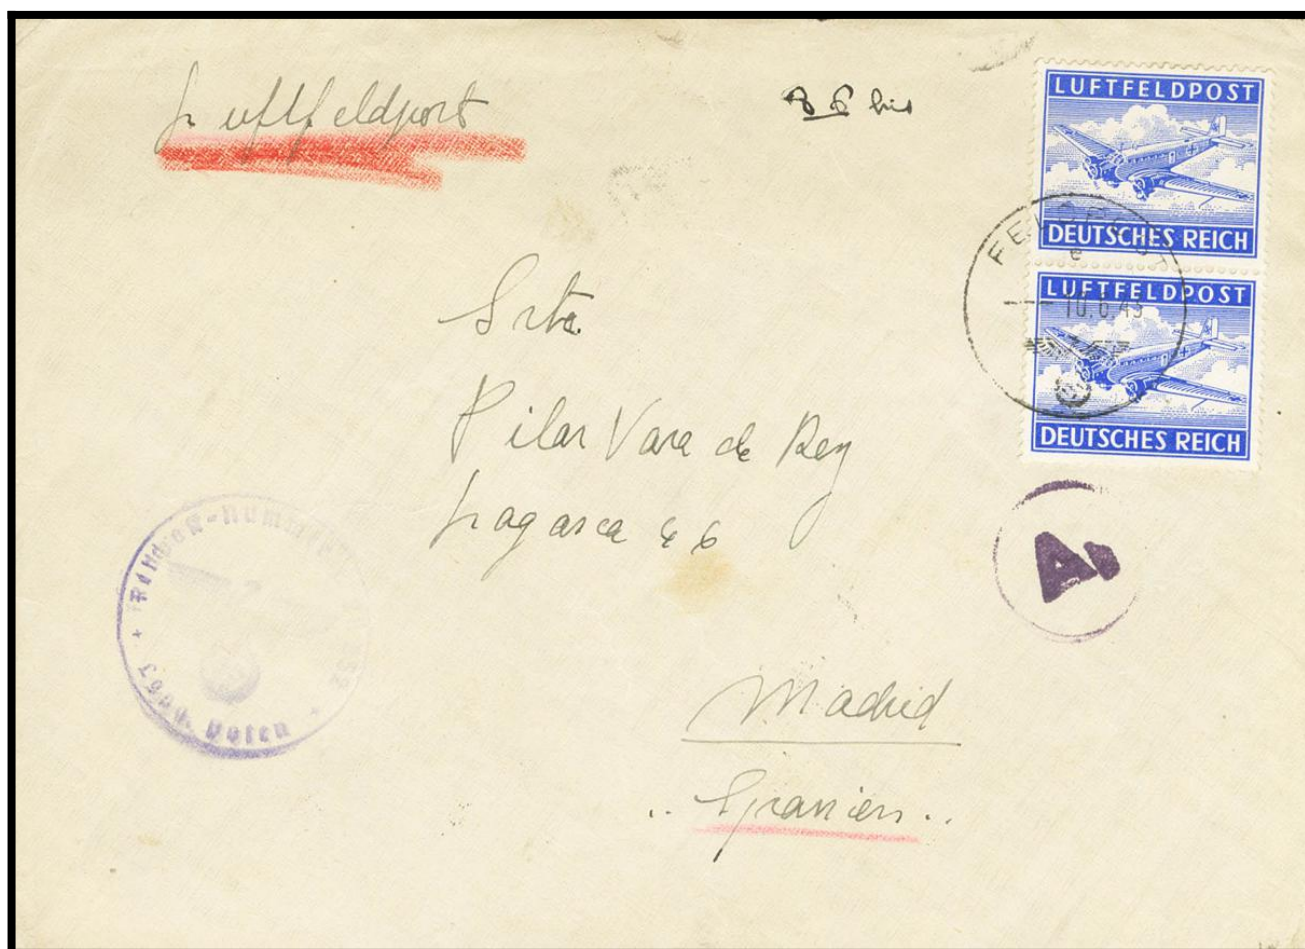 Luftfeldpost
bis
LUFTFELDPOST
DEUTSCHES REICH
FELDPOST
e
10.6.43
LUFTFELDPOST
DEUTSCHES REICH
Srta.
Pilar Vara de Rey
Lagasca 46
Feldpost-Nummer
Madrid
.. Spanien ..